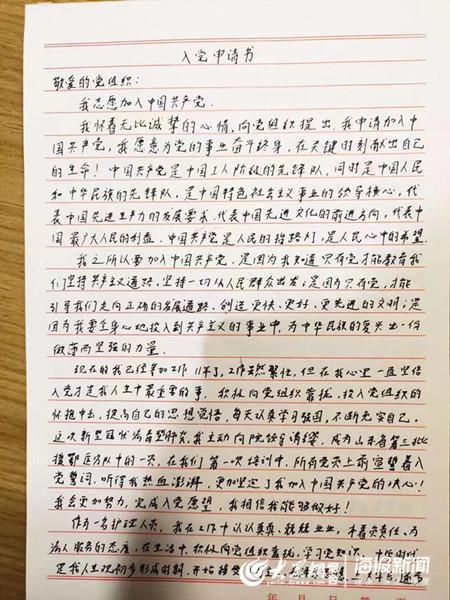 入党申请书
敬爱的党组织：
我志愿加入中国共产党.
我怀着无比诚挚的心情，向党组织提出，我申请加入中
国共产党，我愿意为党的事业奋斗终身，在关键时刻献出自己
的生命！中国共产党是中国工人阶级的先锋队，同时是中国人民
和中华民族的先锋队，是中国特色社会主义事业的领导核心，代
表中国先进生产力的发展要求，代表中国先进文化的前进方向，代表中
国最广大人民的利益.中国共产党是人民的指路灯，是人民心中的希望.
我之所以要加入中国共产党，是因为我知道只有党才能教育我
们坚持共产主义道路，坚持一切从人民群众出发；是因为只有党，才能
引导我们走向正确的发展道路，创造更快、更好、更先进的文明；是
因为我要全身心地投入到共产主义的事业中，为中华民族的复兴出一份
微薄而坚强的力量.
现在的我已经参加工作11年了，工作虽然繁忙，但在我心里一直坚信
入党才是我人生中最重要的事.积极向党组织靠拢，投入党组织的
怀抱中去，提高自己的思想觉悟，每天认真学习强国，不断充实自己.
这次新型冠状病毒肺炎，我主动向院领导请缨，成为山东省第三批
援鄂医疗队中的一员，在我们第一次培训中，所有党员上前宣誓着入
党誓词，听得我热血澎湃，更加坚定了我加入中国共产党的决心！
我会更加努力，完成入党愿望，我相信我能够做好！
作为一名护理人员，我在工作中认认真真、兢兢业业，本着负责任、为
病人服务的态度，在生活中，积极向党组织靠拢，学习党知识.中学时代
是我人生观初步形成时期，开始接受
大众网 海报新闻
年 月 日 第 页